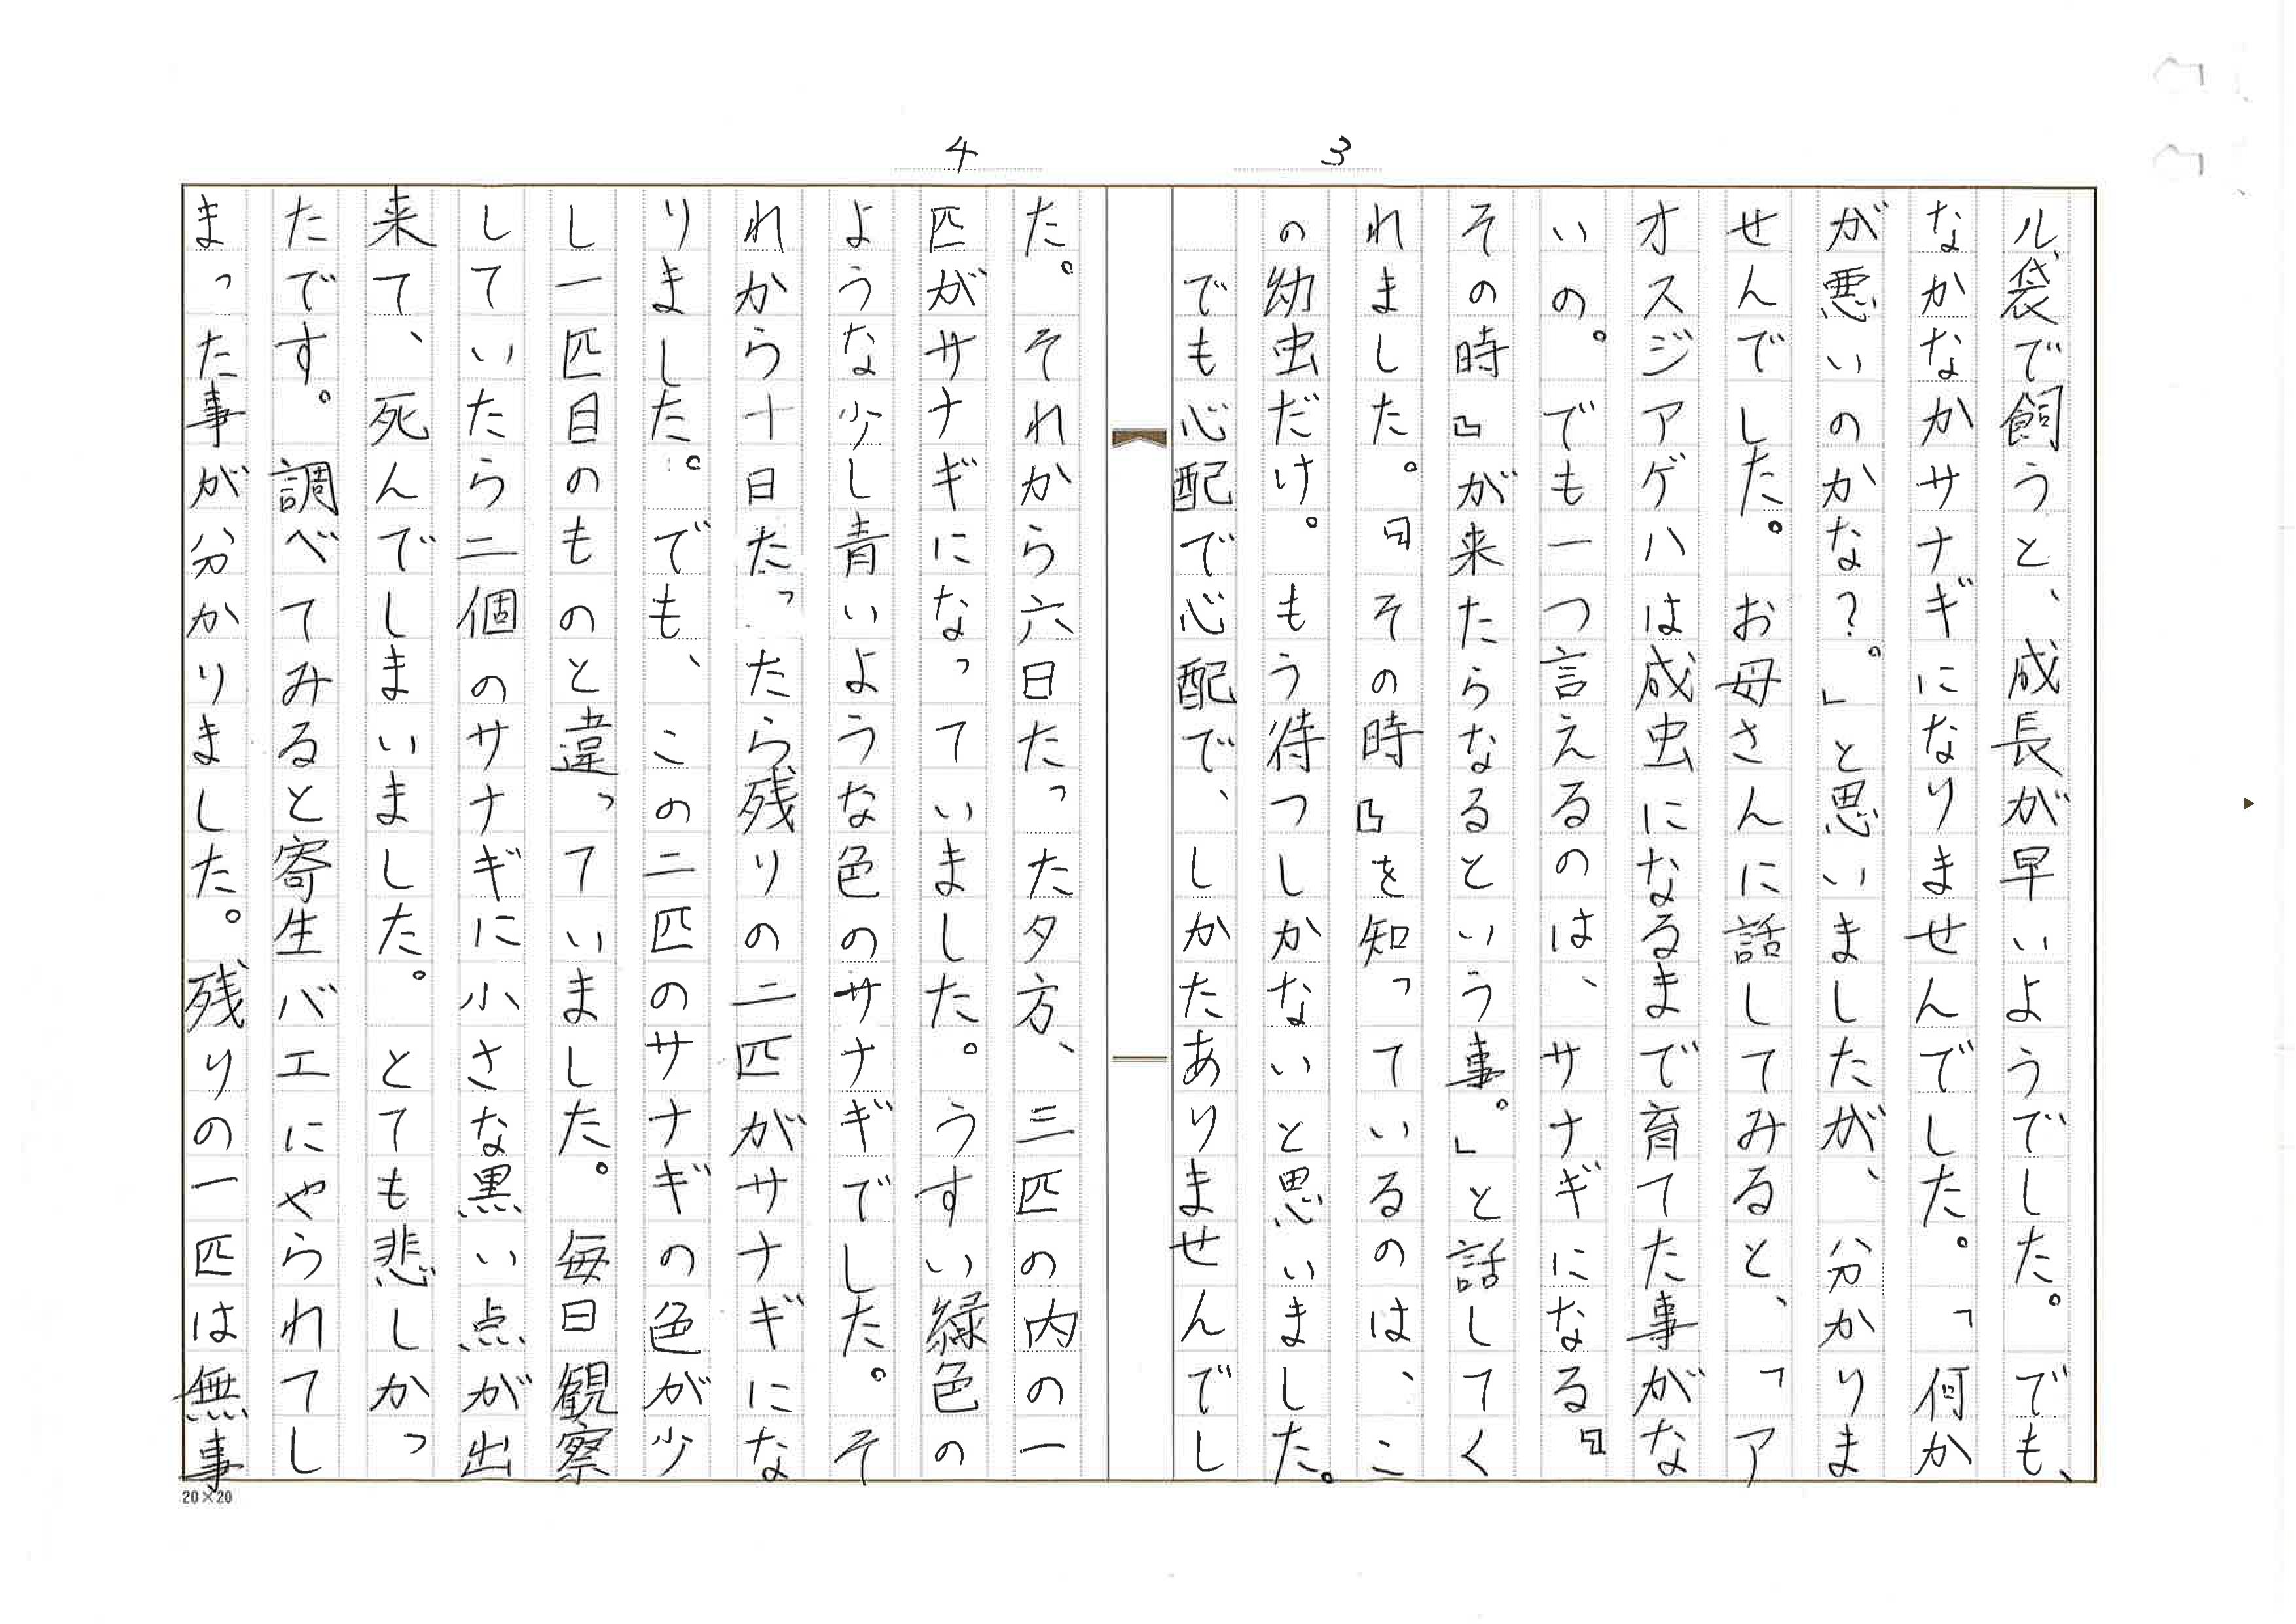 3
ル袋で飼うと、成長が早いようでした。でも、
なかなかサナギになりませんでした。「何か
が悪いのかな?。」と思いましたが、分かりま
せんでした。お母さんに話してみると、「ア
オスジアゲハは成虫になるまで育てた事がな
いの。でも一つ言えるのは、サナギになる『
その時』が来たらなるという事。」と話してく
れました。『その時』を知っているのは、こ
の幼虫だけ。もう待つしかないと思いました。
でも心配で心配で、しかたありませんでし
4
た。それから六日たった夕方、三匹の内の一
匹がサナギになっていました。うすい緑色の
ような少し青いような色のサナギでした。そ
れから十日たったら残りの二匹がサナギにな
りました。でも、この二匹のサナギの色が少
し一匹目のものと違っていました。毎日観察
していたら二個のサナギに小さな黒い点が出
来て、死んでしまいました。とても悲しかっ
たです。調べてみると寄生バエにやられてし
まった事が分かりました。残りの一匹は無事
20×20